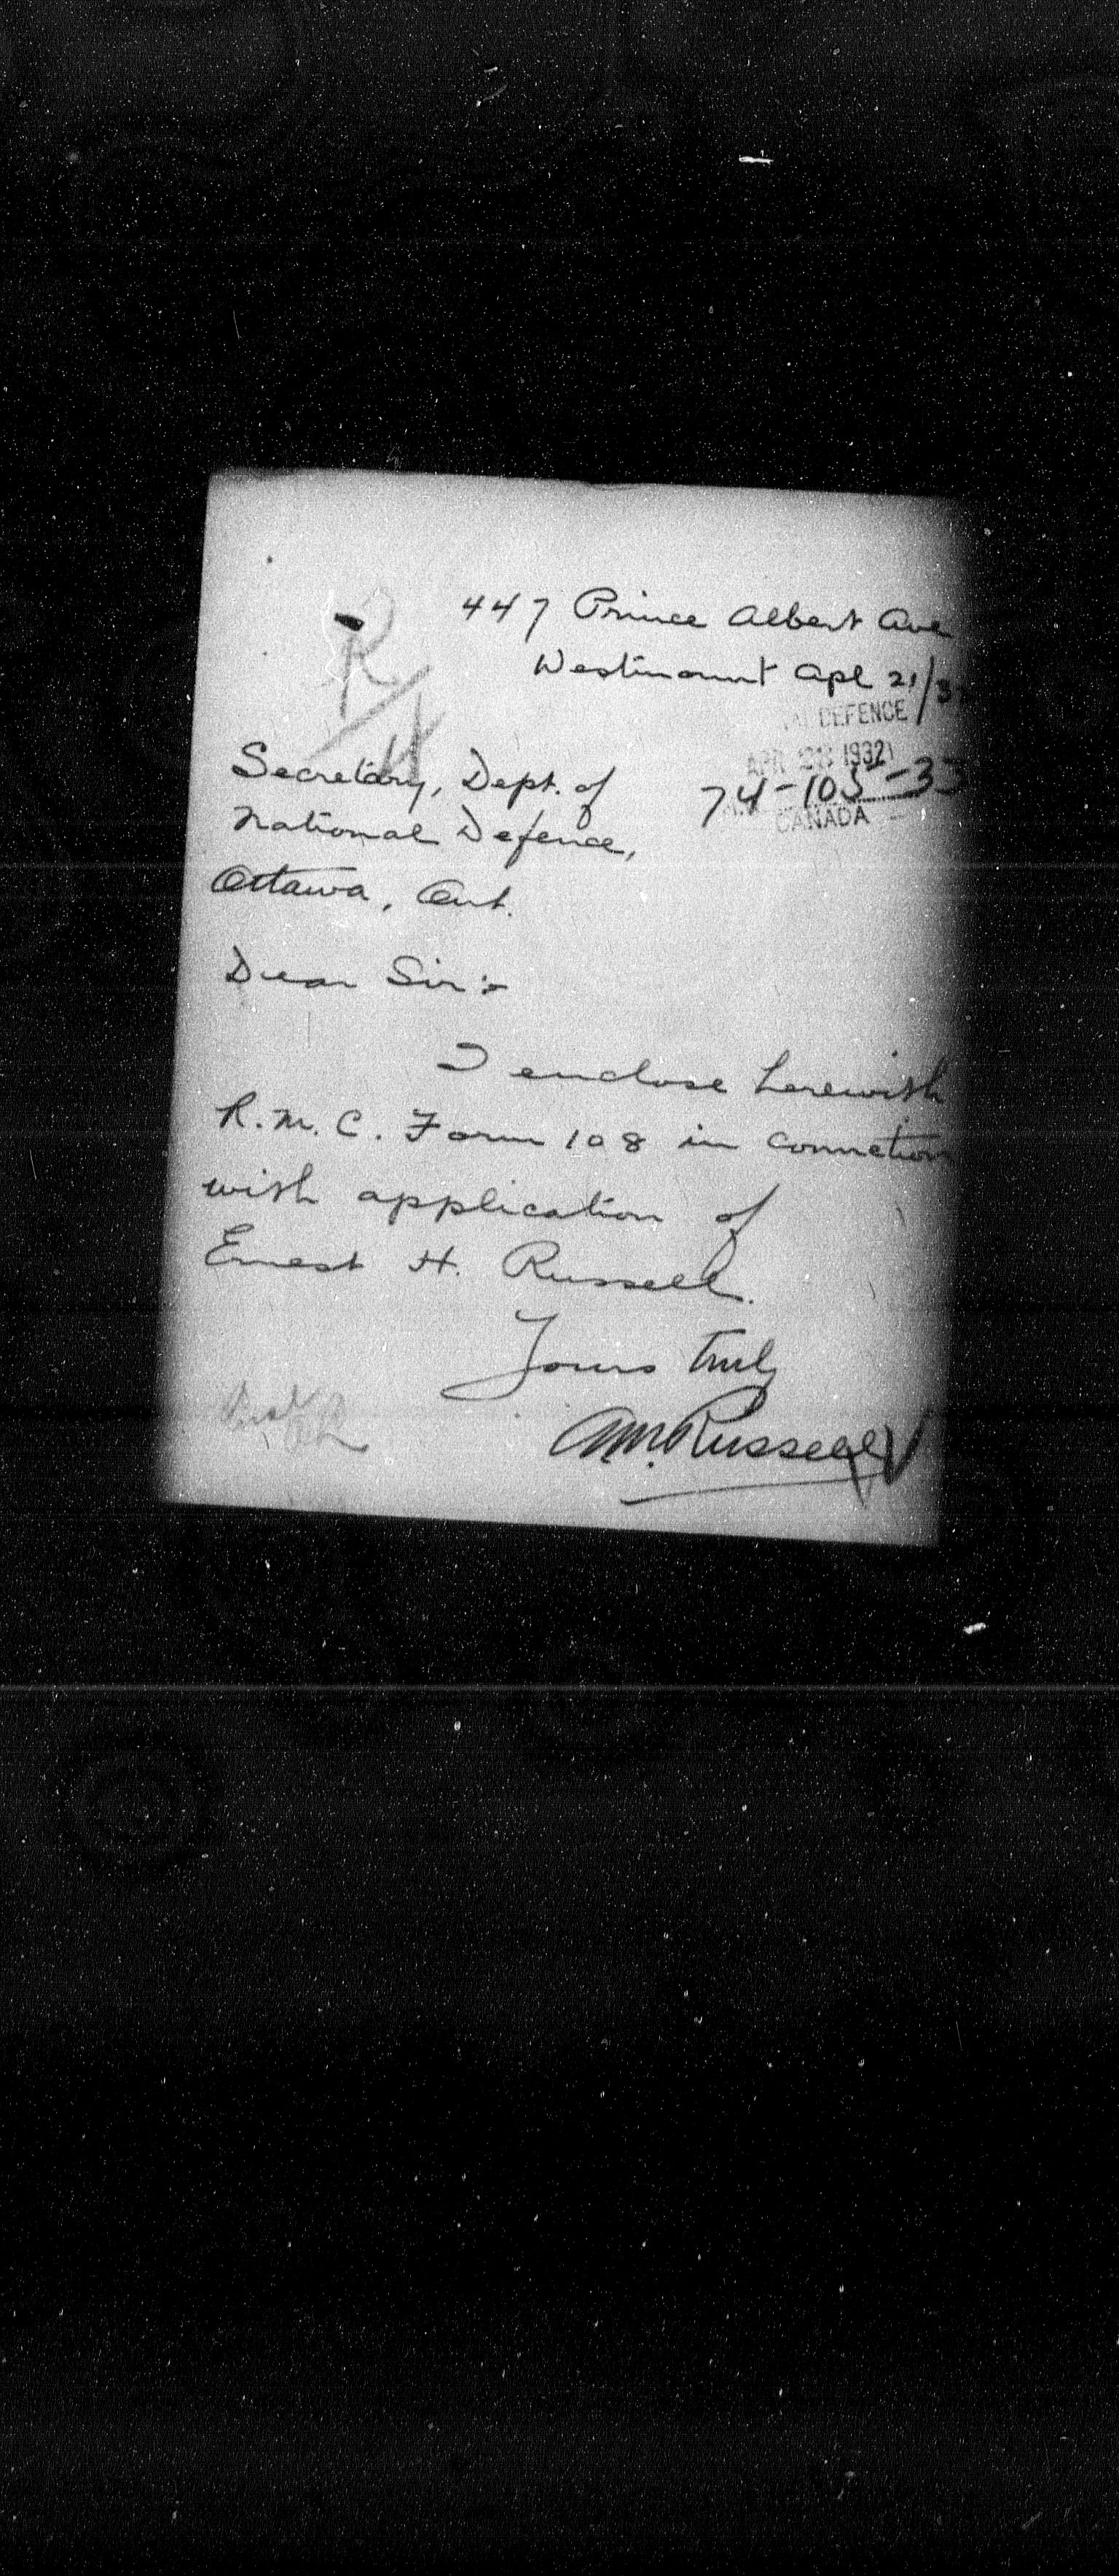 447 Prince Albert Ave
Westmount Apl 21/3
DEFENCE
APR 1932
74-105-33
CANADA
R
Secretary, Dept. of
National Defence,
Ottawa, Ont.
Dear Sir:-
I enclose herewith
R.M.C. Form 108 in connction
with application of
Ernest H. Russell.
Yours truly
AM. Russell